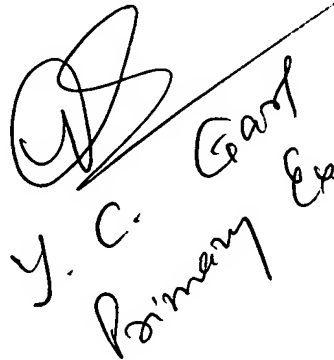 Y. C. Garg
Primary Ex